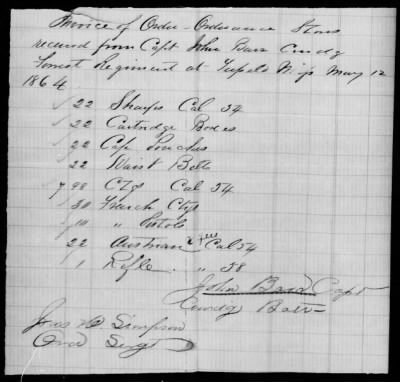 Invoice of Ordce - Ordnance Stores
received from Capt John Bard Comdg
Forrest Regiment at Tupelo Miss May 12
1864
22 Sharps Cal 54
22 Cartridge Boxes
22 Cap Pouches
22 Waist Belts
98 Ctgs Cal 54
30 French Ctgs
10 " Pistols
22 Austrian Cal 54
1 Rifle " 58
John Bard Capt
Comdg Batn
Jas H. Simpson
Ord Sergt